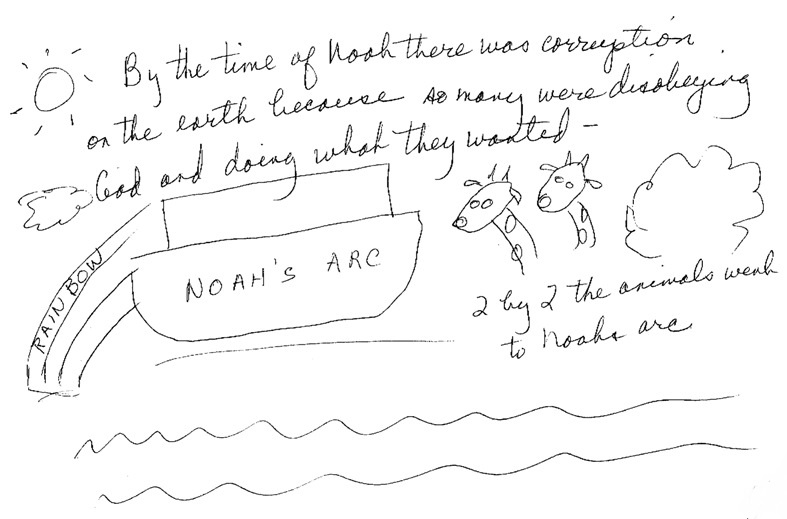 By the time of Noah there was corruption
on the earth because so many were disobeying
God and doing what they wanted -
RAINBOW
NOAH'S ARC
2 by 2 the animals went
to Noahs arc